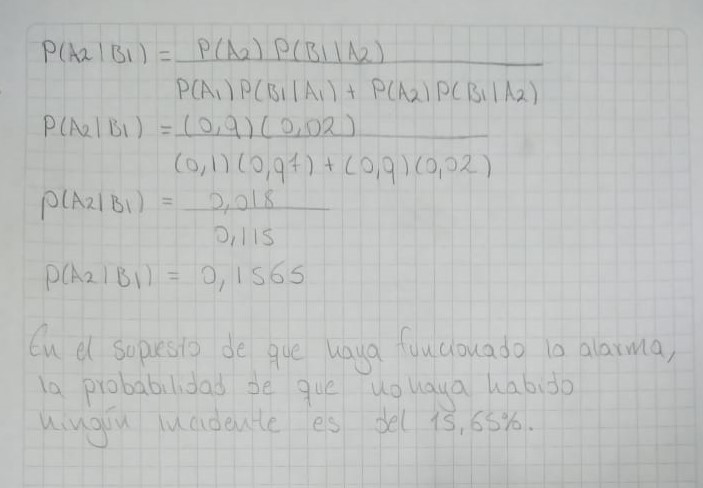 P(A2|B1) = P(A2) P(B1|A2)
P(A1)P(B1|A1) + P(A2)P(B1|A2)
P(A2|B1) = (0,9)(0,02)
(0,1)(0,97) + (0,9)(0,02)
P(A2|B1) = 0,018
0,115
P(A2|B1) = 0,1565
En el supuesto de que haya funcionado la alarma,
la probabilidad de que no haya habido
ningún incidente es del 15,65%.